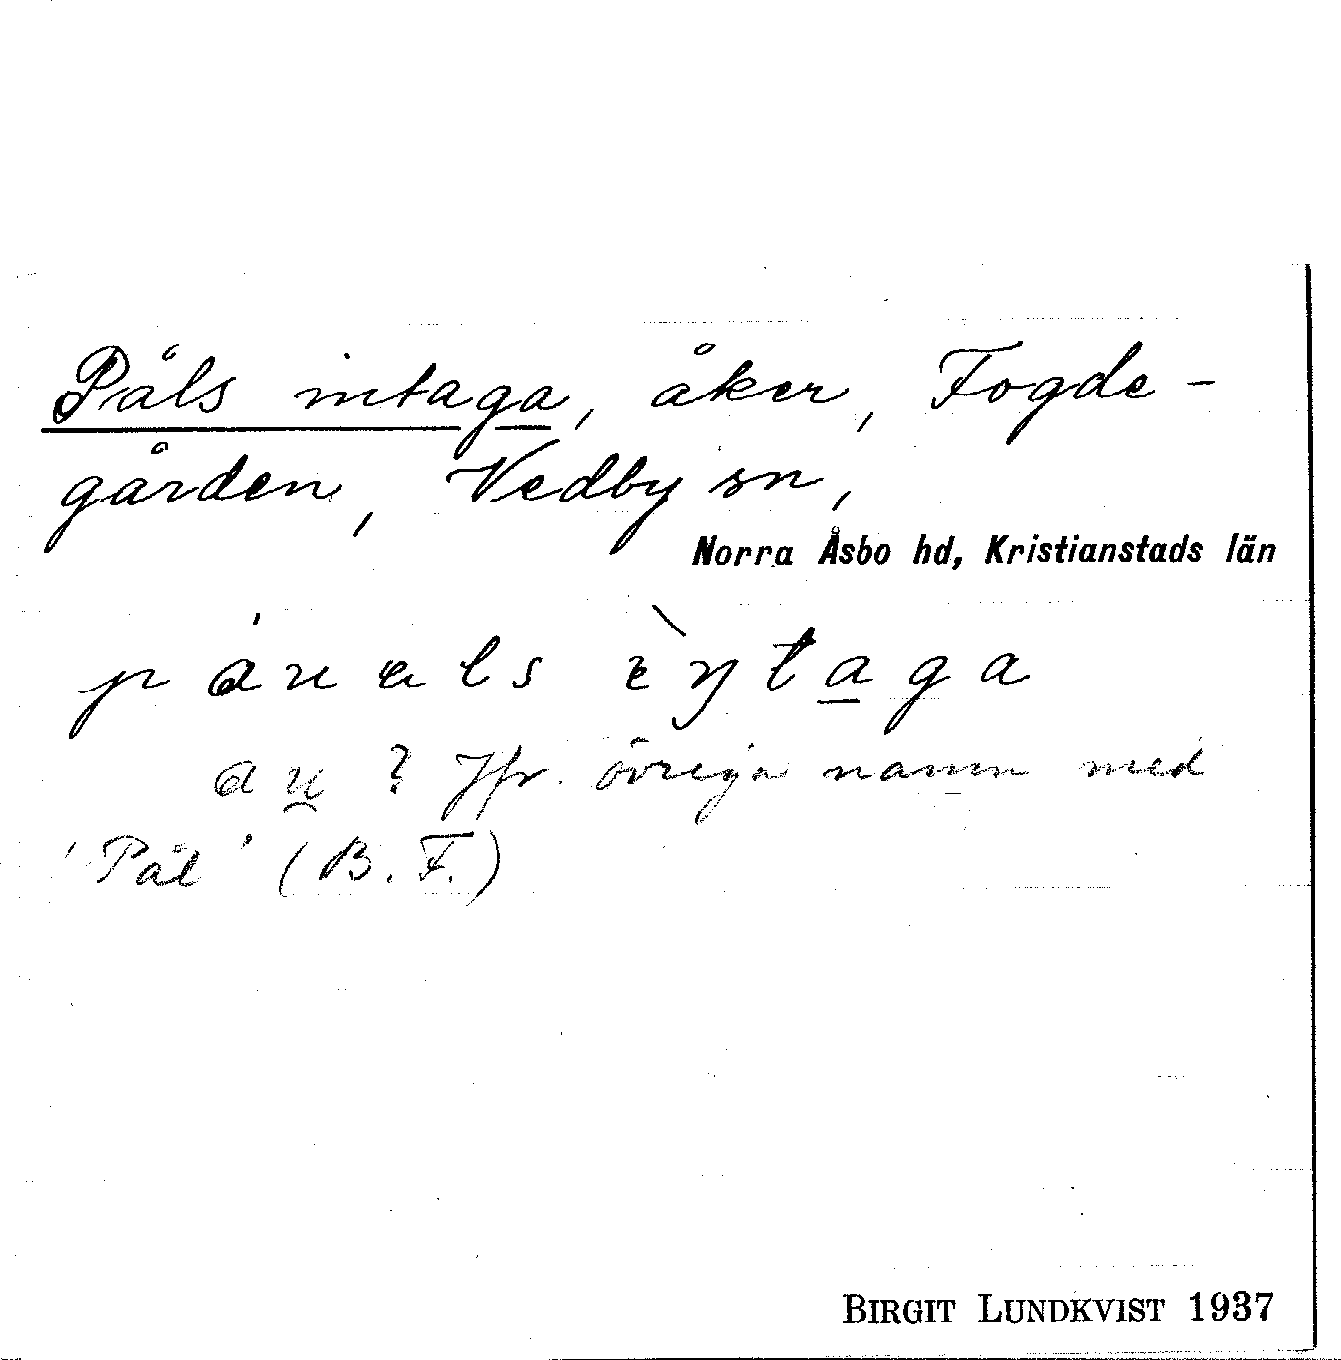 Påls intaga, åker, Fogde-
gården, Vedby sn,
Norra Åsbo hd, Kristianstads län
a u ? Jfr. övriga namn med
'Pål' (B. F.)
BIRGIT LUNDKVIST 1937